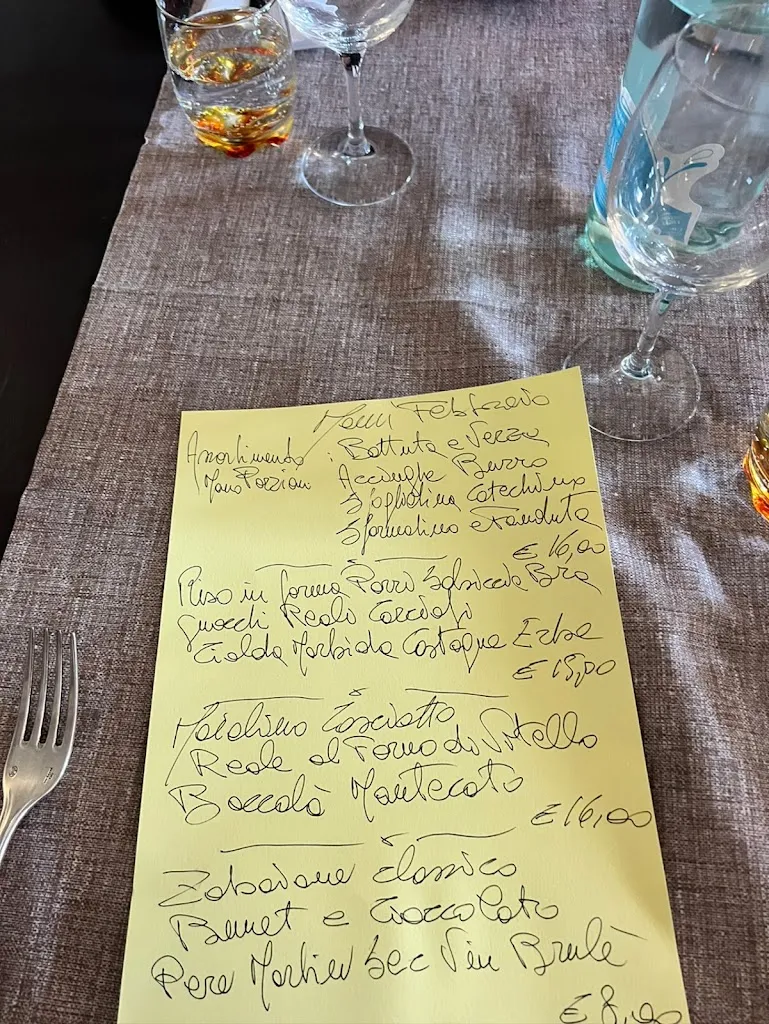 Menù Febbraio
Assortimento : Battuta e Verza
Mono Porzioni Acciughe Burro
Sfogliatina Cotechino
Sformatino e Fonduta
€ 16,00
Riso in forma Porri Salsiccia Bra
Gnocchi Reali Carciofi
Cialda Morbida Castagne Erbe
€ 15,00
Maialino Cosciotto
Reale al Forno di Vitello
Baccalà Mantecato
€ 16,00
Zabaione Classico
Bunet e Cioccolato
Pere Martin Sec Vin Brulè
€ 8,00